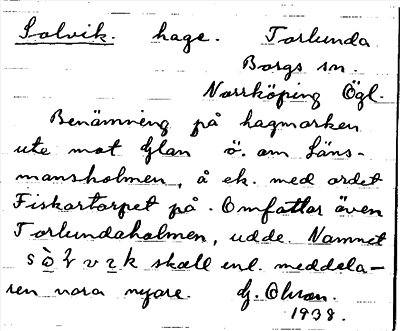 Solvik. hage. Torlunda
Borgs sn.
Norrköping Ögl.
Benämning på hagmarken
ute mot Glan ö. om Läns-
mansholmen, å ek. med ordet
Fiskartorpet på. Omfattar även
Torlundaholmen, udde. Namnet
skall enl. meddela-
ren vara nyare. G. Olson.
1938.